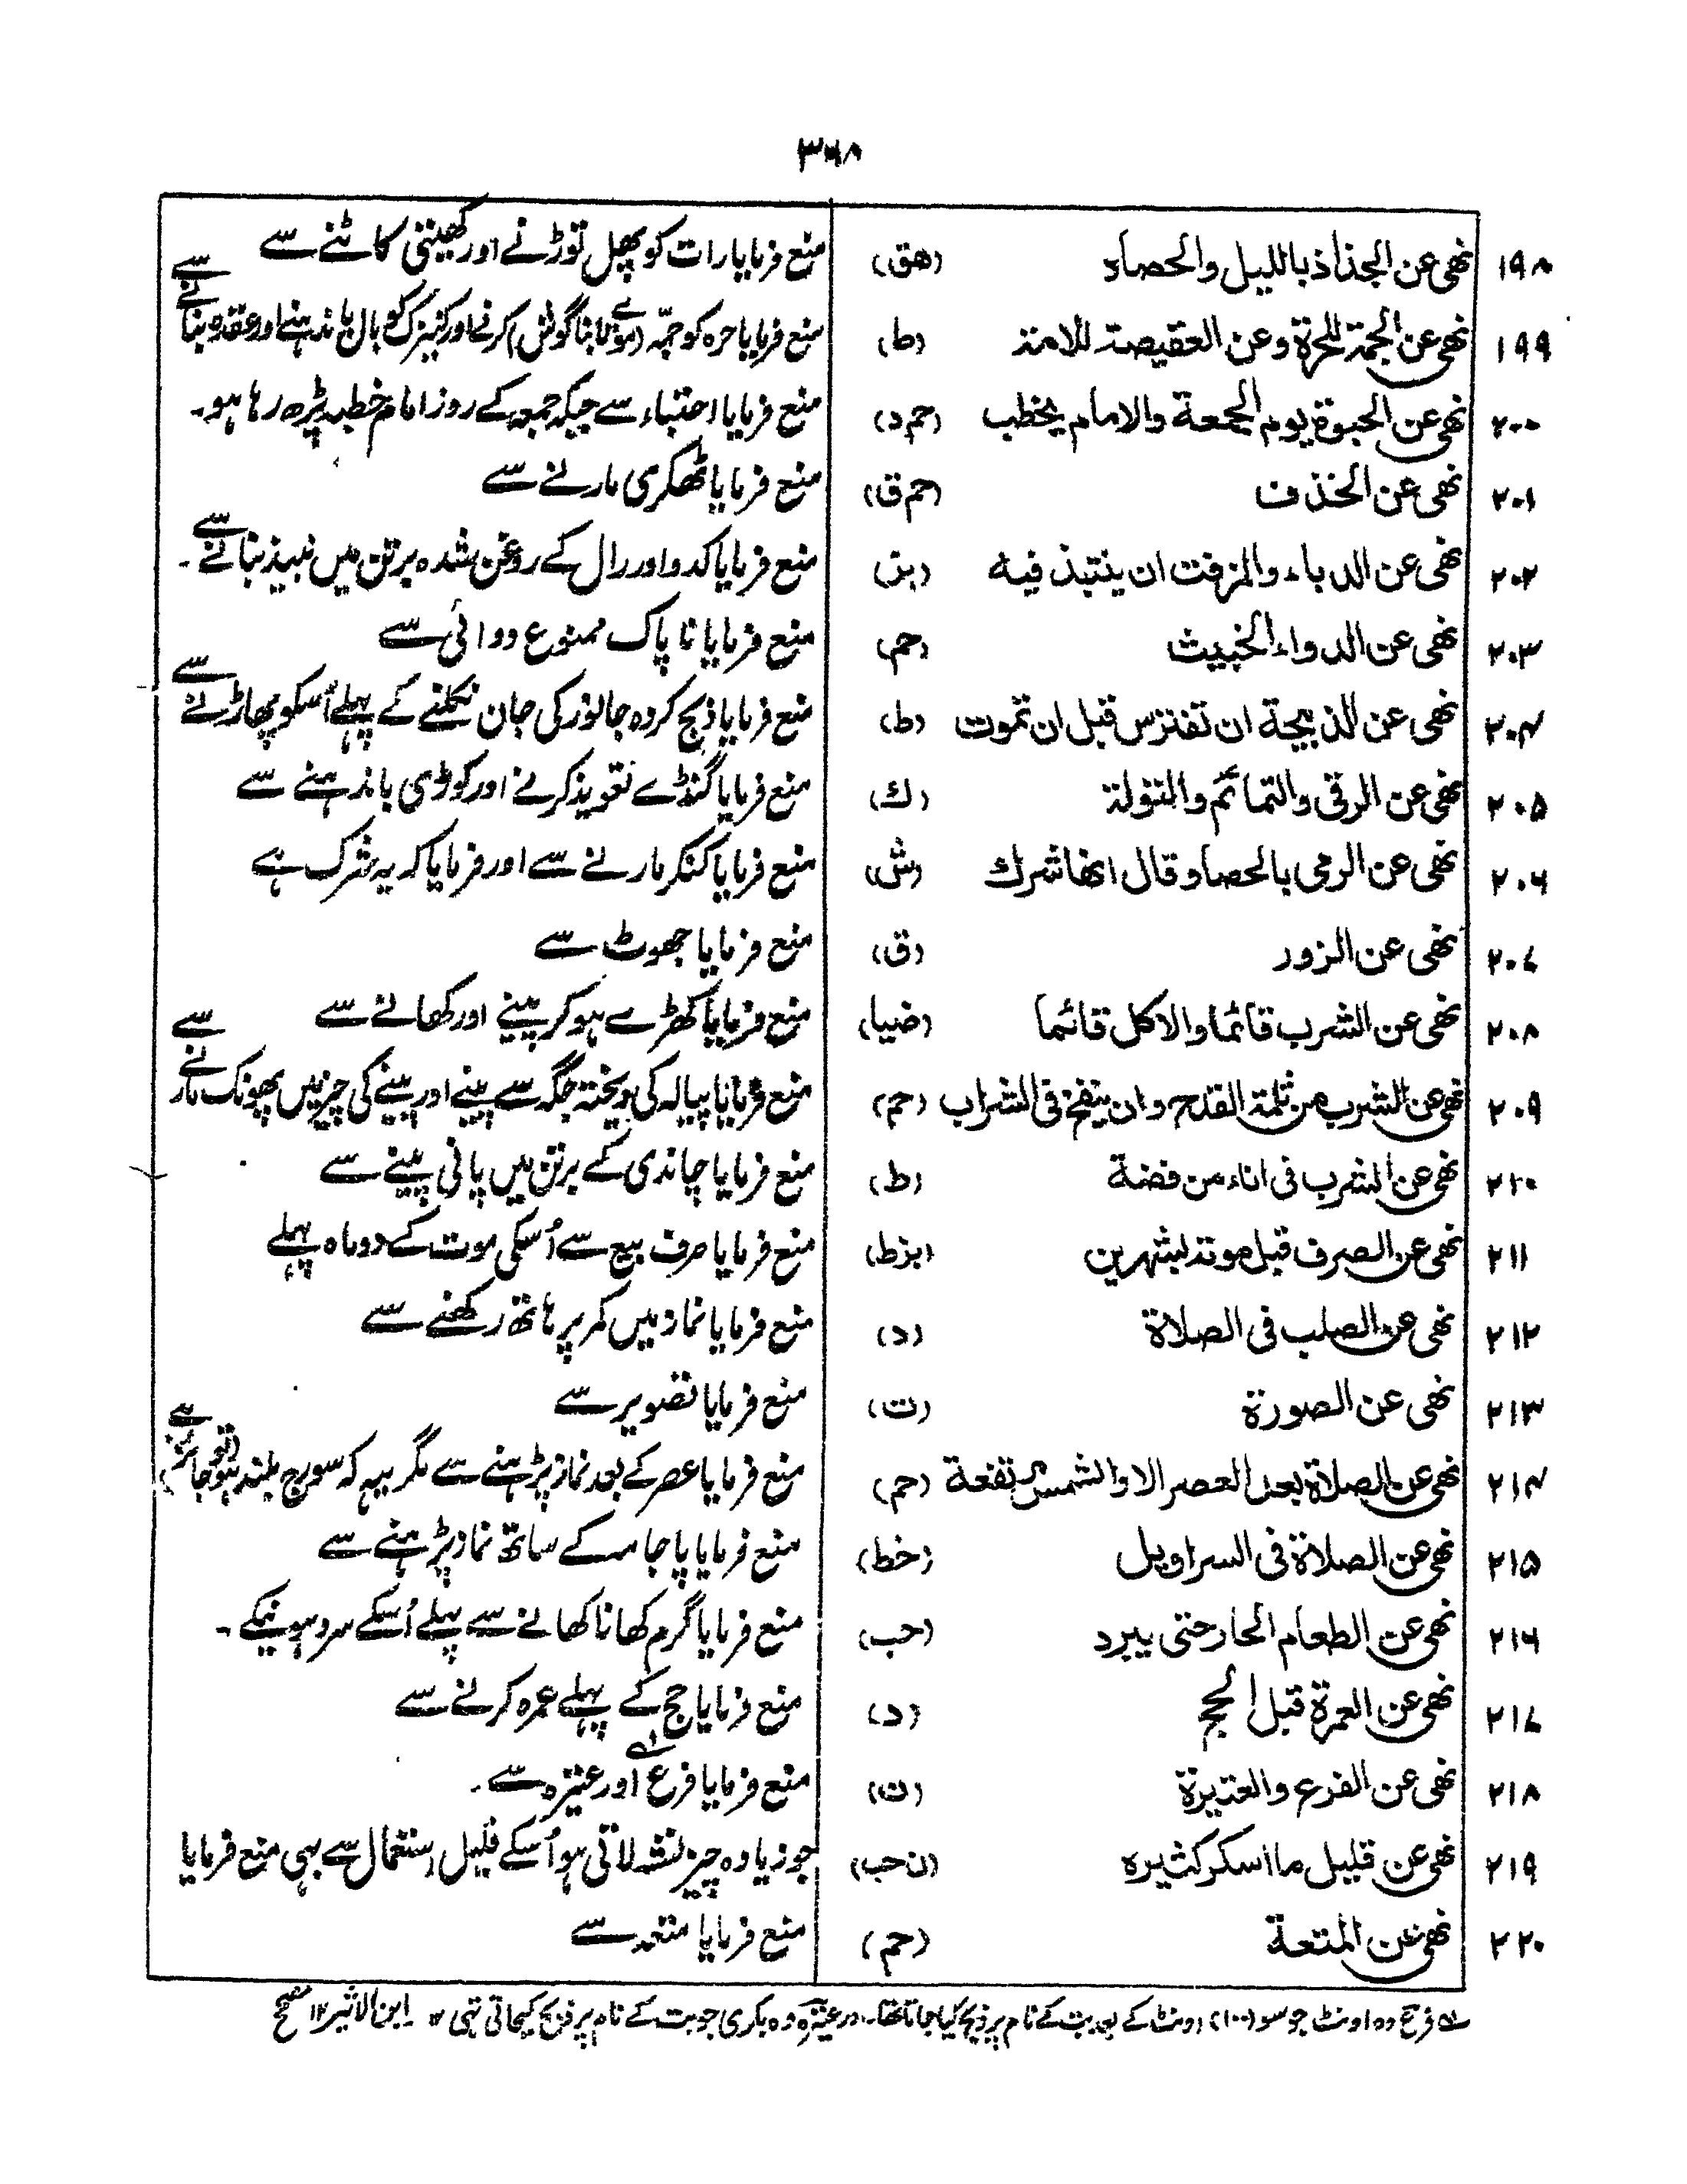 ۳۶۸
۱۹۸ نھی عن الجذاذ باللیل والحصاد (ھق) منع فرمایا رات کو پھل توڑنے اور کھیتی کاٹنے سے
۱۹۹ نھی عن الجمۃ للحرۃ وعن العقیصۃ للامۃ (ط) منع فرمایا حرہ کو جمّہ (موئے تا بنا گوش) کرنے اور کنیزک کو بال باندہنے اور عقدہ بنانے سے
۲۰۰ نھی عن الحبوۃ یوم الجمعۃ والامام یخطب (حم د) منع فرمایا احتباء سے جبکہ جمعہ کے روز امام خطبہ پڑھ رہا ہو۔
۲۰۱ نھی عن الخذف (حم ق) منع فرمایا ٹھکری مارنے سے
۲۰۲ نھی عن الدباء والمزفت ان ینتبذ فیہ (بز) منع فرمایا کدو اور رال کے روغن شدہ برتن میں نبیذ بنانے سے۔
۲۰۳ نھی عن الدواء الخبیث (حم) منع فرمایا ناپاک ممنوع دوائی سے
۲۰۴ نھی عن الذبیحۃ ان تفترس قبل ان تموت (ط) منع فرمایا ذبح کردہ جانور کی جان نکلنے کے پہلے اُسکو پھاڑنے سے
۲۰۵ نھی عن الرقی والتمائم والتولۃ (ك) منع فرمایا گنڈے تعویذ کرنے اور کوڑی باندہنے سے
۲۰۶ نھی عن الرمی بالحصا وقال انھا شرك (ش) منع فرمایا کنکر مارنے سے اور فرمایا کہ یہ شرک ہے
۲۰۷ نھی عن الزور (ق) منع فرمایا جھوٹ سے
۲۰۸ نھی عن الشرب قائما والاکل قائما (ضیا) منع فرمایا کھڑے ہو کر پینے اور کھانے سے
۲۰۹ نھی عن الشرب من ثلمۃ القدح وان ینفخ فی الشراب (حم) منع فرمایا پیالہ کی ریختہ جگہ سے پینے اور پینے کی چیز میں پھونک مارنے سے
۲۱۰ نھی عن الشرب فی اناء من فضۃ (ط) منع فرمایا چاندی کے برتن میں پانی پینے سے
۲۱۱ نھی عن الصرف قبل موتہ بشہرین (بزط) منع فرمایا صرف بیع سے اُسکی موت کے دو ماہ پہلے
۲۱۲ نھی عن الصلب فی الصلاۃ (د) منع فرمایا نماز میں کمر پر ہاتھ رکھنے سے
۲۱۳ نھی عن الصورۃ (ت) منع فرمایا تصویر سے
۲۱۴ نھی عن الصلاۃ بعد العصر الا والشمس مرتفعۃ (حم) منع فرمایا عصر کے بعد نماز پڑہنے سے مگر یہہ کہ سورج بلند ہو (تو جائز ہے)
۲۱۵ نھی عن الصلاۃ فی السراویل (خط) منع فرمایا پاجامہ کے ساتھ نماز پڑہنے سے
۲۱۶ نھی عن الطعام الحار حتی یبرد (حب) منع فرمایا گرم کھانا کھانے سے پہلے اُسکے سرد ہونیکے۔
۲۱۷ نھی عن العمرۃ قبل الحج (د) منع فرمایا حج کے پہلے عمرہ کرنے سے
۲۱۸ نھی عن الفرع والعتیرۃ (ن) منع فرمایا فرع اور عتیرہ سے۔
۲۱۹ نھی عن قلیل ما اسکر کثیرہ (ن حب) جو زیادہ چیز نشہ لاتی ہو اُسکے قلیل استعمال سے بھی منع فرمایا
۲۲۰ نھی عن المتعۃ (حم) منع فرمایا متعہ سے
فرع وہ اونٹ جو سو (۱۰۰) اونٹ کے بعد بت کے نام پر ذبح کیا جاتا تھا۔ اور عتیرہ وہ بکری جو بت کے نام پر ذبح کیجاتی تہی ابن الاثیر ۱۲ مصحح